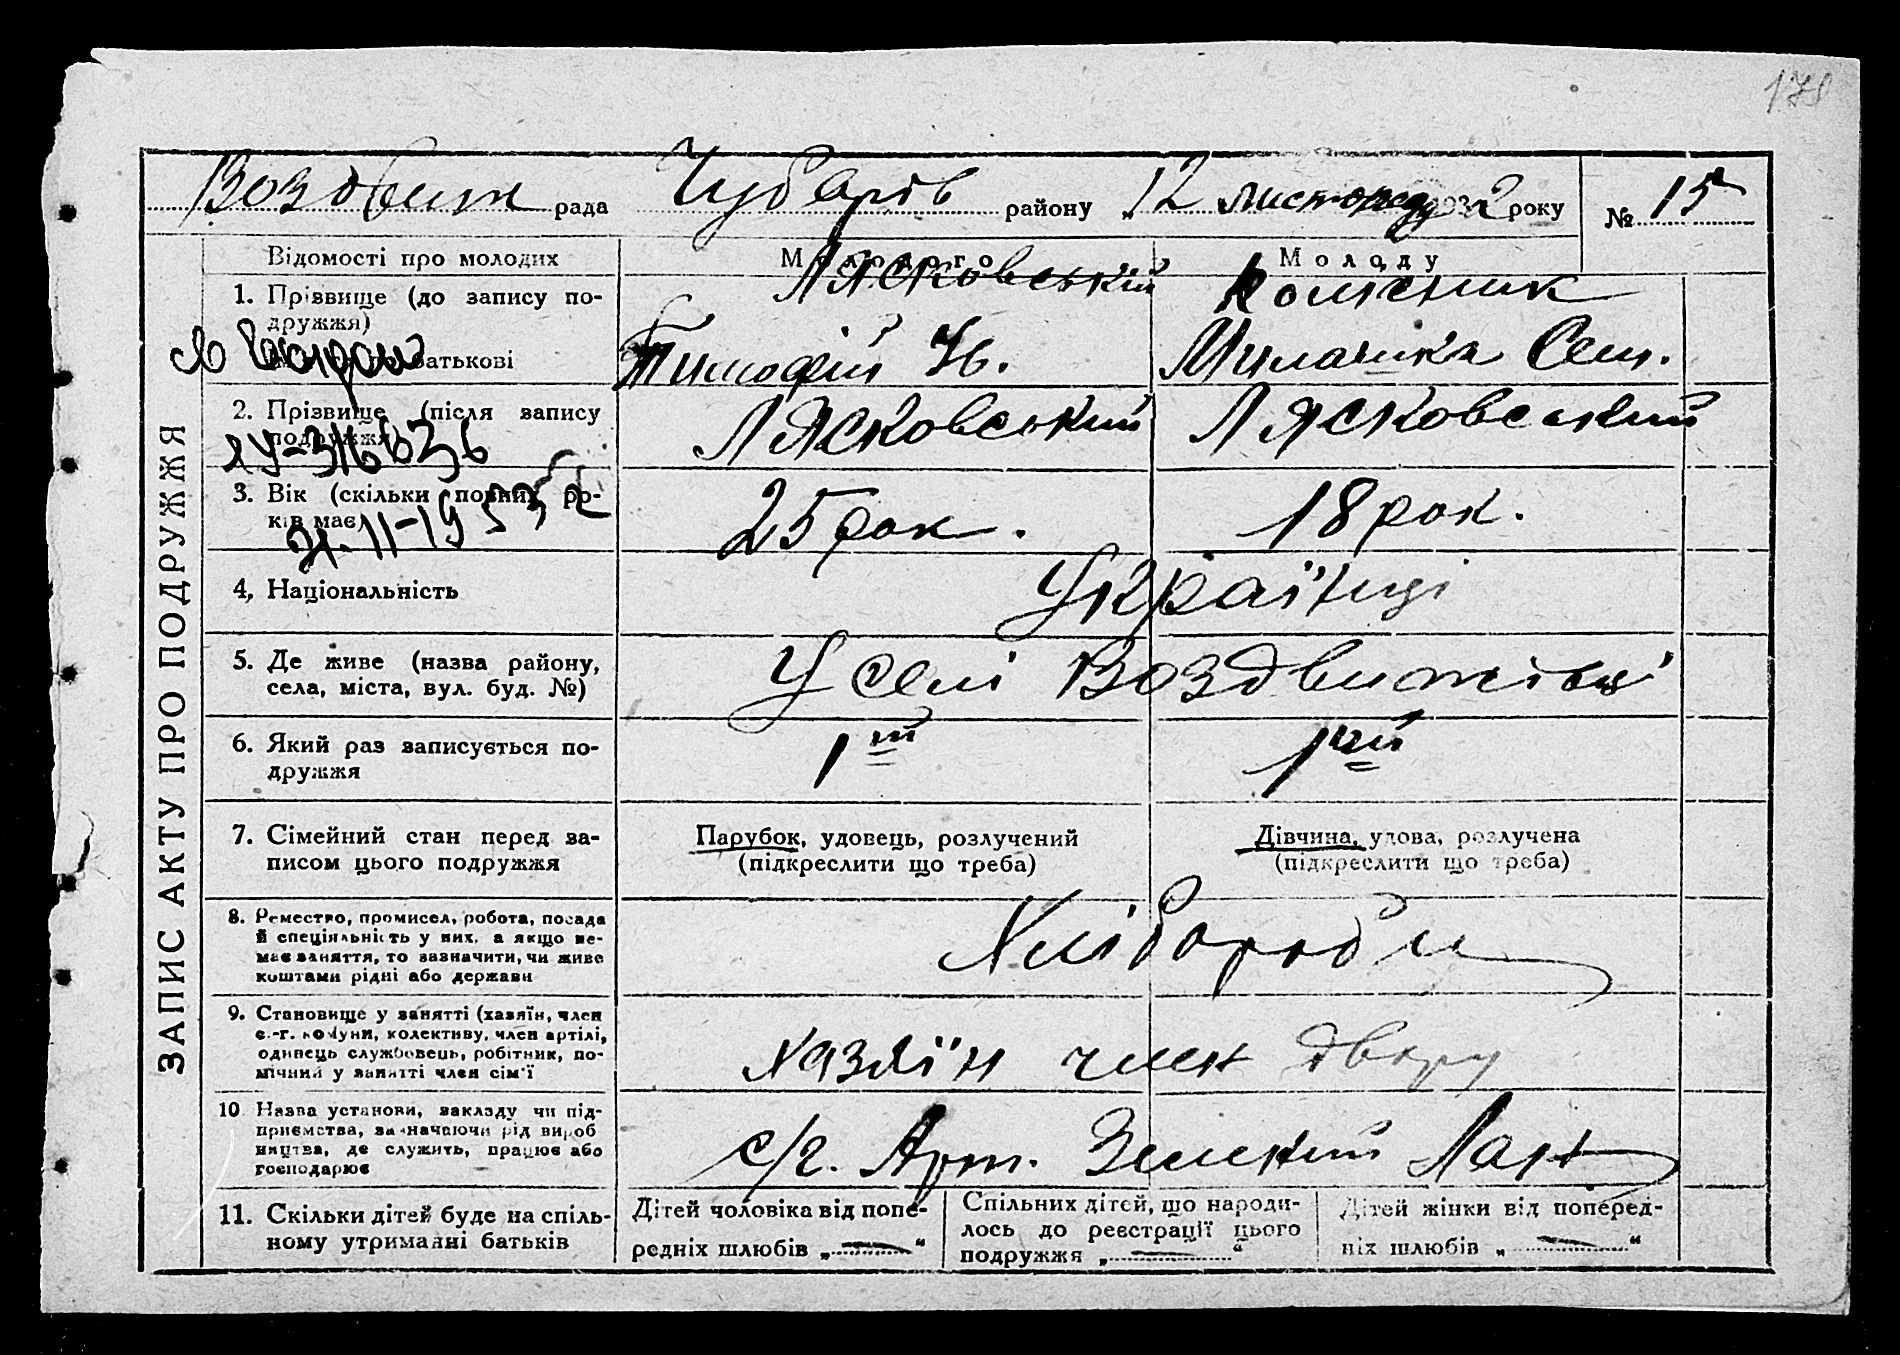 178
Воздвиж рада Чубарів району „12 листопаду 1932 року № 15
Відомості про молодих Молодого Молоду
1. Прізвище (до запису подружжя) Лясковський Колісник
Ім'я та по батькові Тимофій Ів. Миланика Сем.
2. Прізвище (після запису подружжя) Лясковський Лясковський
ЯУ-316036
3. Вік (скільки повних років має) 25 рок. 18 рок.
21-11-1953 г
4, Національність Українці
5. Де живе (назва району, села, міста, вул. буд. №) У селі Воздвижівці
6. Який раз записується подружжя 1ий 1ий
7. Сімейний стан перед записом цього подружжя Парубок, удовець, розлучений (підкреслити що треба) Дівчина, удова, розлучена (підкреслити що треба)
8. Ремество, промисел, робота, посада й спеціяльність у них, а якщо немає заняття, то зазначити, чи живе коштами рідні або держави Хлібороби
9. Становище у занятті (хазяїн, член с.-г. комуни, колективу, член артілі, одинець службовець, робітник, помічний у занятті член сім'ї Хазяїн член двору
10 Назва установи, закладу чи підприємства, зазначаючи рід виробництва, де служить, працює або господарює с/г. Арт. Земский Лан
11. Скільки дітей буде на спільному утриманні батьків Дітей чоловіка від попередніх шлюбів „—“ Спільних дітей, що народилось до реєстрації цього подружжя „—“ Дітей жінки від попередніх шлюбів „—“
ЗАПИС АКТУ ПРО ПОДРУЖЖЯ